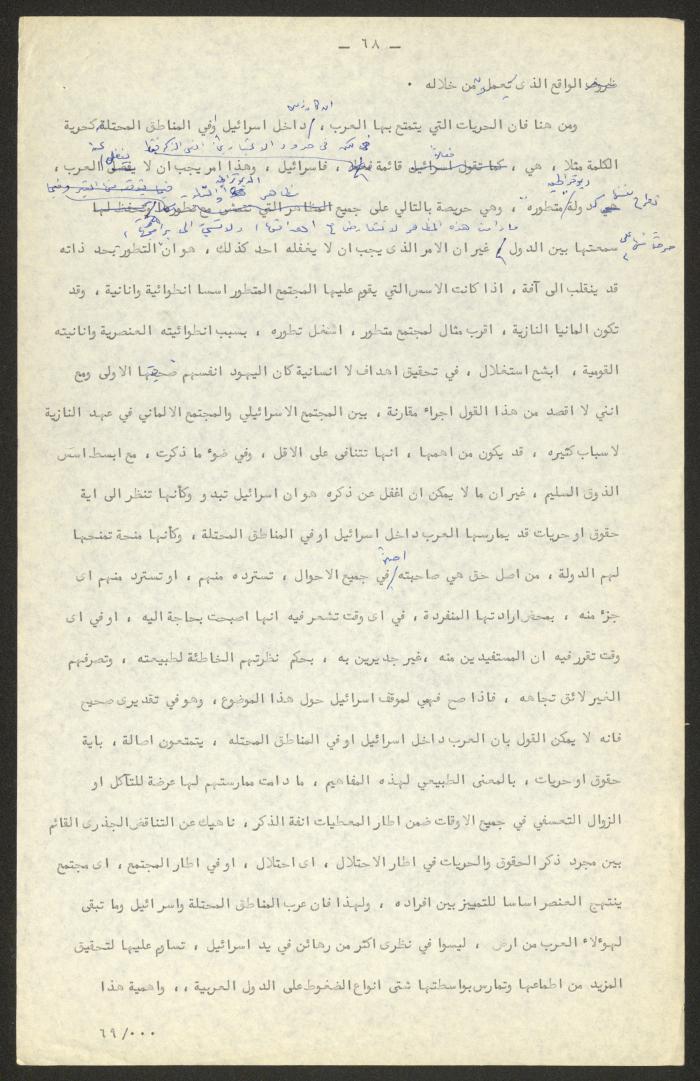 — ٦٨ —
ظروف الواقع الذى يعملون من خلاله .
ومن هنا فان الحريات التي يتمتع بها العرب ، داخل اسرائيل او في المناطق المحتلة، كحرية
الكلمة مثلا ، هي ، كما تقول اسرائيل قائمة فعلا ، فاسرائيل ، وهذا امر يجب ان لا يغفل العرب ،
دولة ديموقراطية متطوره ، وهي حريصة بالتالي على جميع المظاهر التي
سمعتها بين الدول غير ان الامر الذى يجب ان لا يغفله احد كذلك ، هو ان التطور بحد ذاته
قد ينقلب الى آفة ، اذا كانت الاسس التي يقوم عليها المجتمع المتطور اسسا انطوائية وانانية ، وقد
تكون المانيا النازية ، اقرب مثال لمجتمع متطور ، استغل تطوره ، بسبب انطوائيته العنصرية وانانيته
القومية ، ابشع استغلال ، في تحقيق اهداف لا انسانية كان اليهود انفسهم ضحيتها الاولى ومع
انني لا اقصد من هذا القول اجراء مقارنة ، بين المجتمع الاسرائيلي والمجتمع الالماني في عهد النازية
لاسباب كثيره ، قد يكون من اهمها ، انها تتنافى على الاقل ، وفي ضوء ما ذكرت ، مع ابسط اسس
الذوق السليم ، غير ان ما لا يمكن ان اغفل عن ذكره هو ان اسرائيل تبدو وكأنها تنظر الى اية
حقوق او حريات قد يمارسها العرب داخل اسرائيل او في المناطق المحتلة ، وكأنها منحة تمنحها
لهم الدولة ، من اصل حق هي صاحبته في جميع الاحوال ، تسترده منهم ، او تسترد منهم اى
جزء منه ، بمحض ارادتها المنفردة ، في اى وقت تشعر فيه انها اصبحت بحاجة اليه ، او في اى
وقت تقرر فيه ان المستفيدين منه ،غير جديرين به ، بحكم نظرتهم الخاطئة لطبيعته ، وتصرفهم
الغير لائق تجاهه ، فاذا صح فهمي لموقف اسرائيل حول هذا الموضوع ، وهو في تقديرى صحيح
فانه لا يمكن القول بان العرب داخل اسرائيل او في المناطق المحتله ، يتمتعون اصالة ، باية
حقوق او حريات ، بالمعنى الطبيعي لهذه المفاهيم ، ما دامت ممارستهم لها عرضة للتآكل او
الزوال التعسفي في جميع الاوقات ضمن اطار المعطيات انفة الذكر ، ناهيك عن التناقض الجذرى القائم
بين مجرد ذكر الحقوق والحريات في اطار الاحتلال ، اى احتلال ، او في اطار المجتمع ، اى مجتمع
ينتهج العنصر اساسا للتمييز بين افراده ، ولهذا فان عرب المناطق المحتلة واسرائيل وما تبقى
لهوءلاء العرب من ارض ، ليسوا في نظرى اكثر من رهائن في يد اسرائيل ، تساوم عليها لتحقيق
المزيد من اطماعها وتمارس بواسطتها شتى انواع الضغوط على الدول العربية ،، واهمية هذا
٦٩/٠٠٠